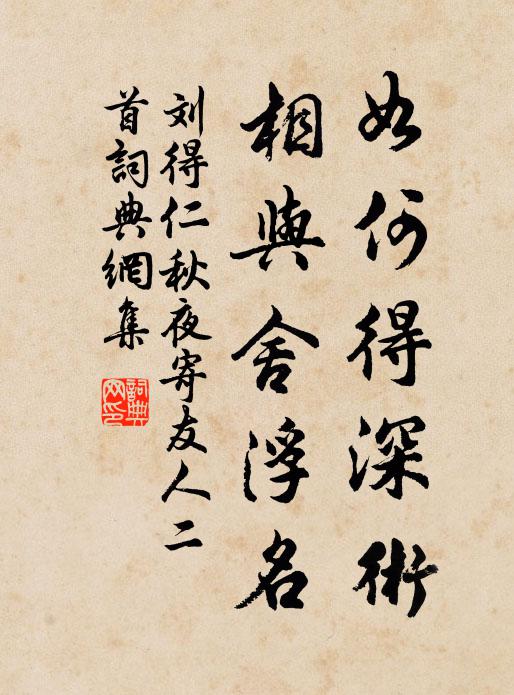 如何得深術
相與舍浮名
刘得仁秋夜寄友人二
首詞典網集
詞典网印